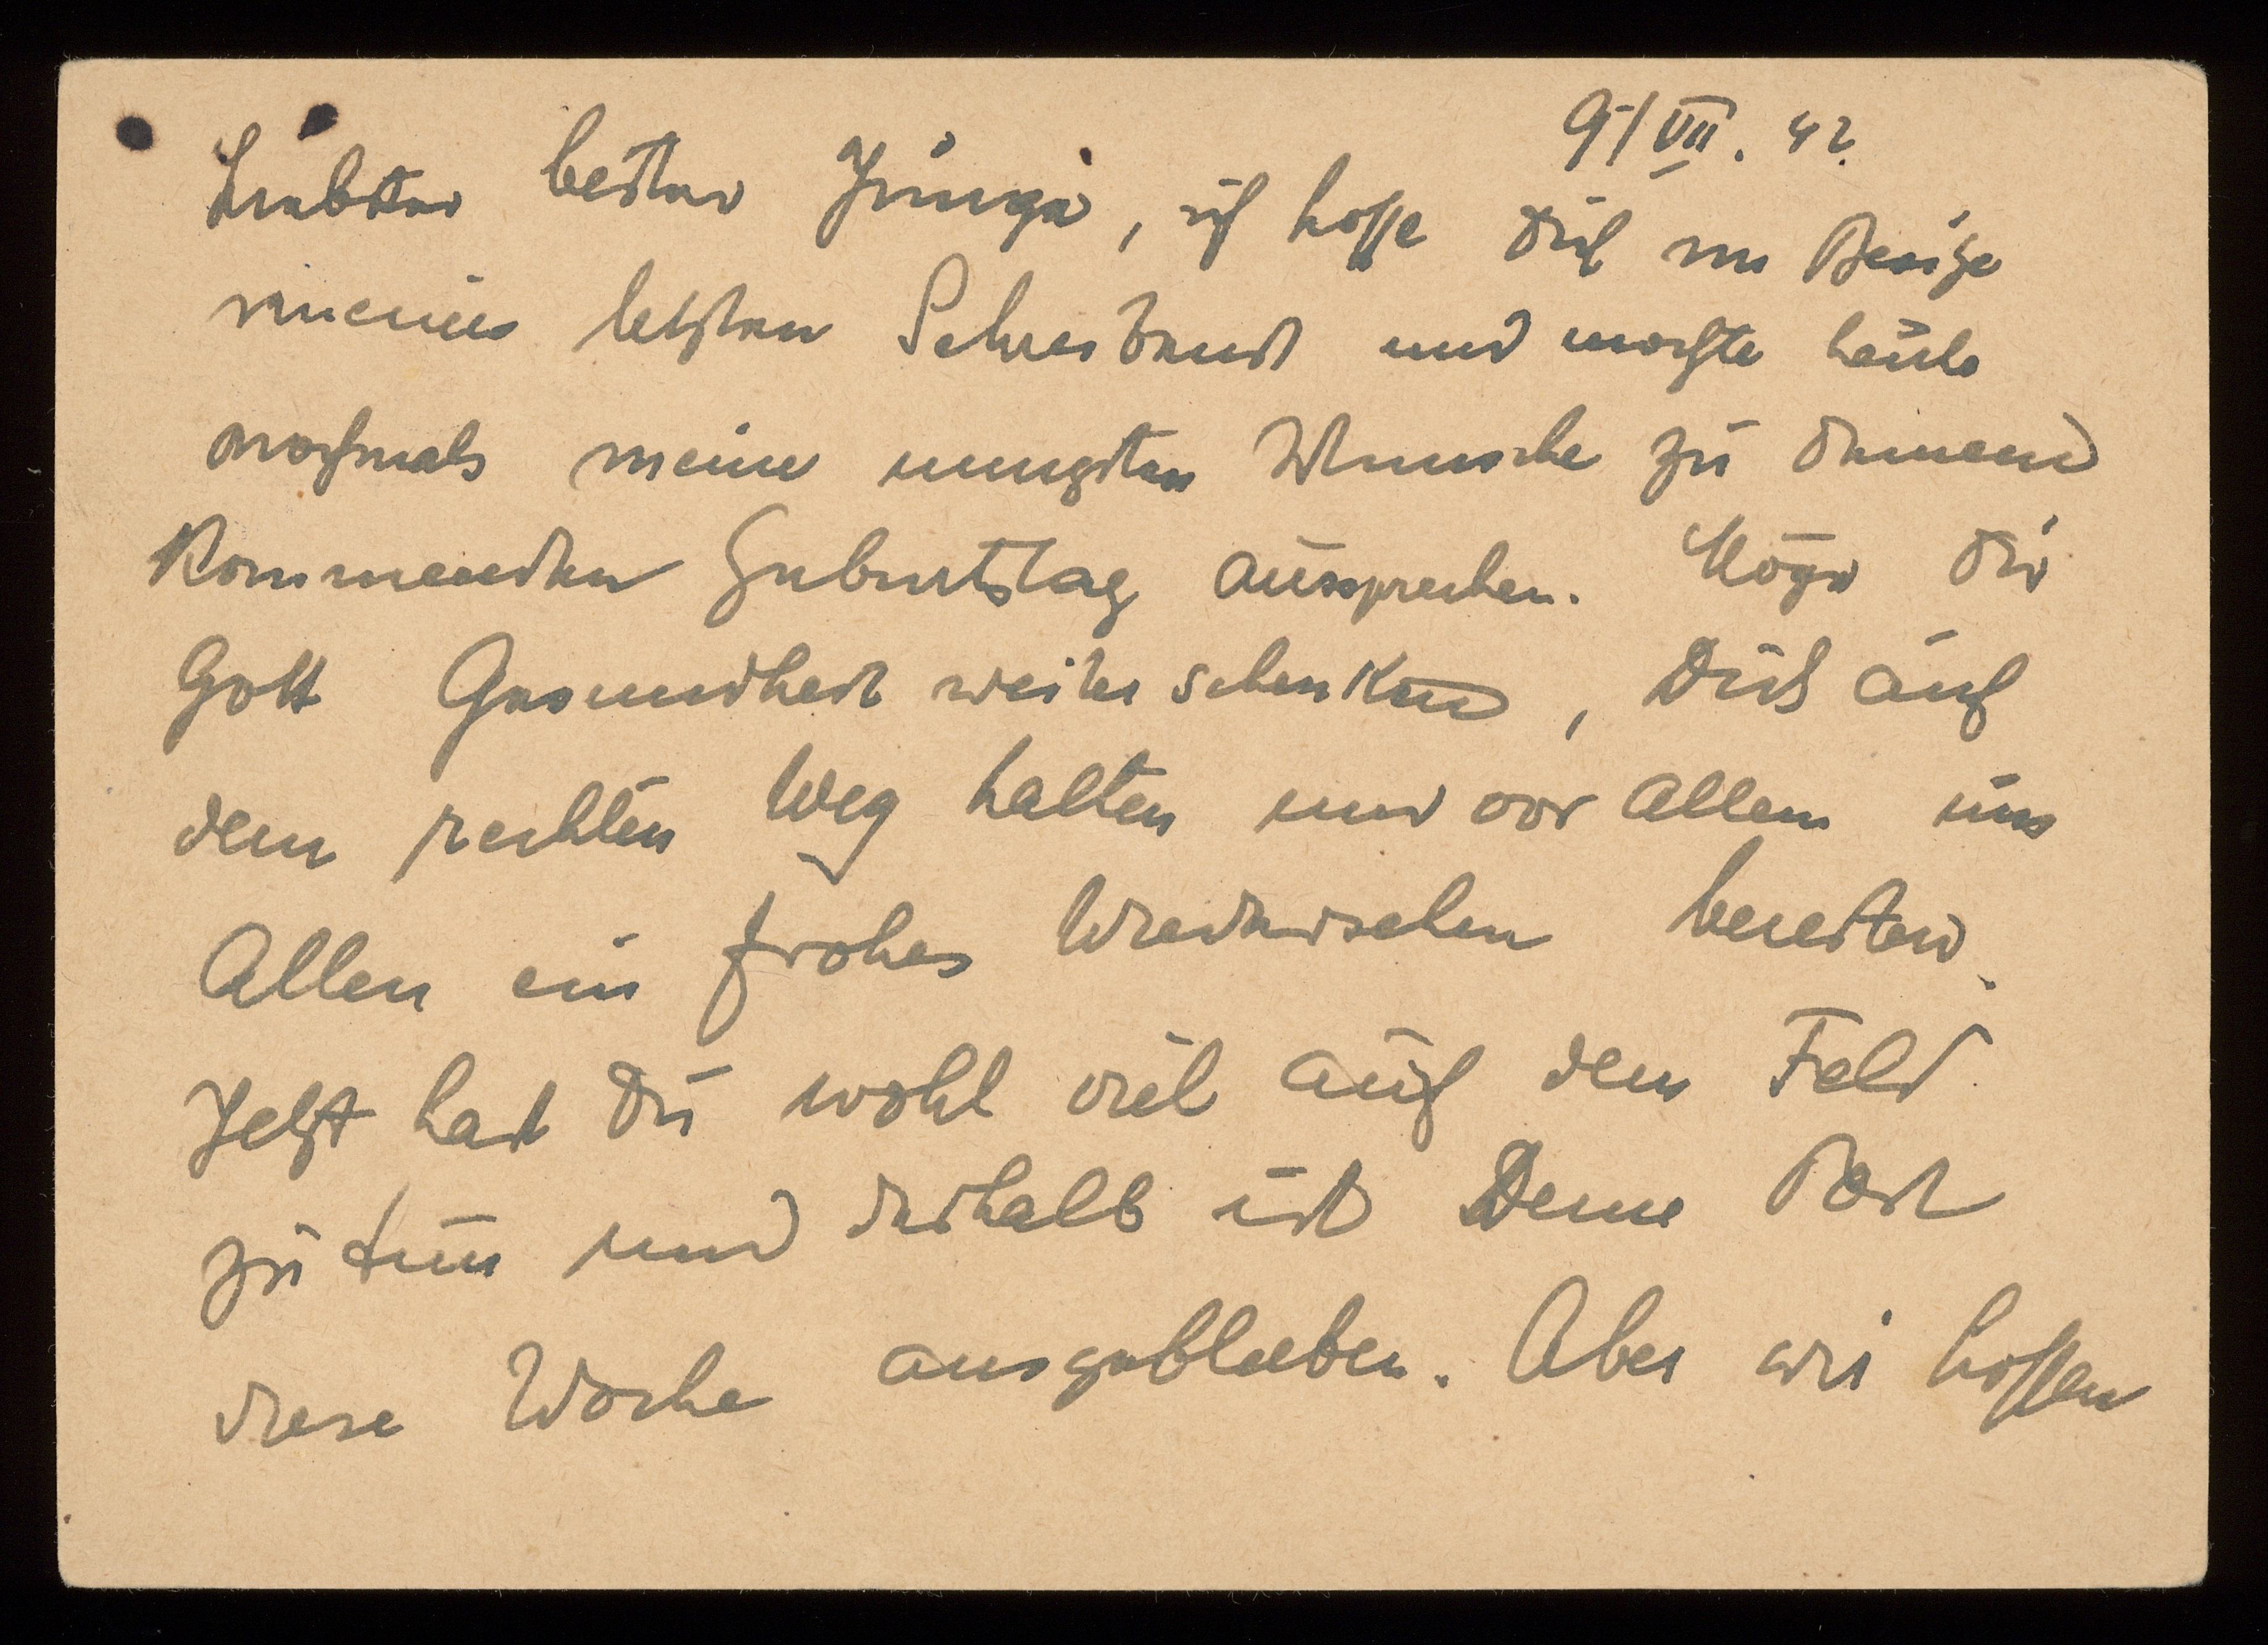 9/VII. 42.
Liebster bester Junge, ich hoffe Dich im Besitze
meines letzten Schreibens und mochte heute
nochmals meine innigsten Wunsche zu deinem
Kommenden Geburtstag aussprechen. Möge dir
Gott Gesundheit weiter schenken, Dich auf
dem rechten Weg halten und vor allem uns
Allen ein frohes Wiedersehen bereiten.
Jetzt hast Du wohl viel auf dem Feld
zu tun und deshalb ist Deine Post
diese Woche ausgeblieben. Aber wir hoffen